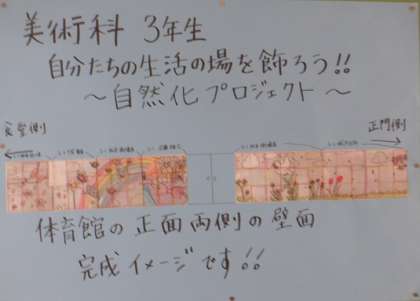 美術科 3年生
自分たちの生活の場を飾ろう!!
～自然化プロジェクト～
正門側
体育館の正面両側の壁面
完成イメージです!!